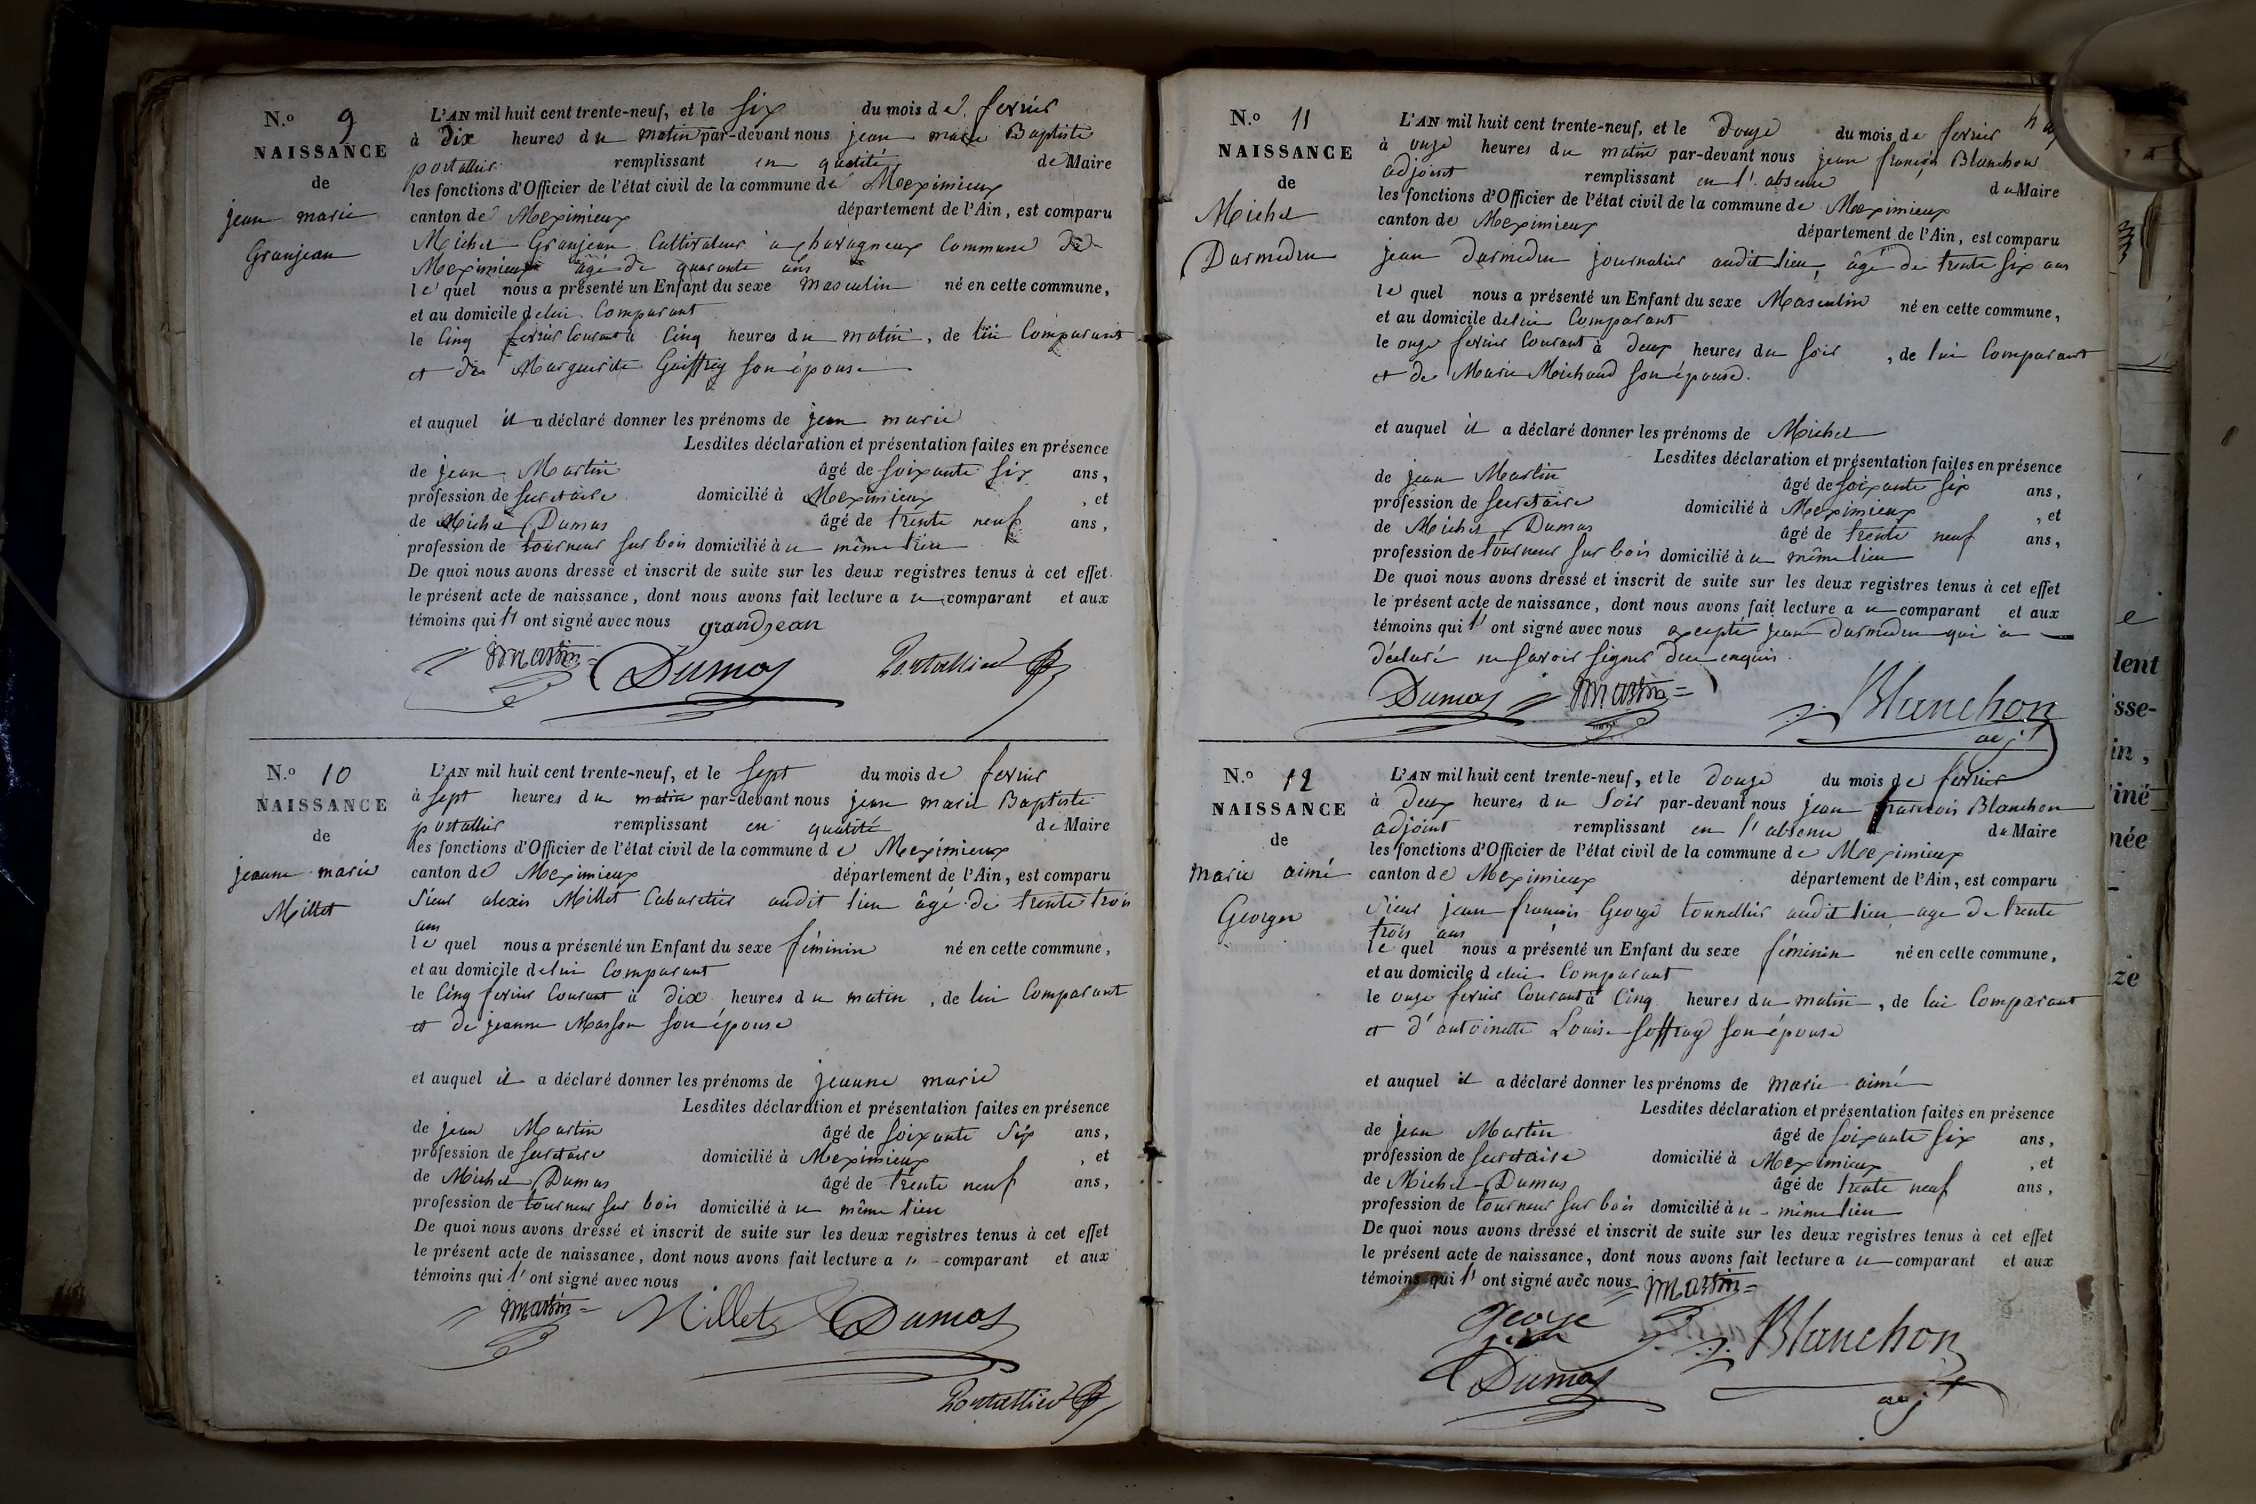 N.º 9
NAISSANCE
de
jean marie
Granjean
L'AN mil huit cent trente-neuf, et le six du mois de fevrier
à Dix heures du matin par-devant nous jean marie Baptiste
portallier remplissant en qualité de Maire
les fonctions d'Officier de l'état civil de la commune de Meximieux
canton de Meximieux département de l'Ain, est comparu
Michel Granjean Cultivateur a charagneux Commune de
Meximieux âgé de quarante ans
le quel nous a présenté un Enfant du sexe masculin né en cette commune,
et au domicile de lui Comparant
le Cinq fevrier Courant à Cinq heures du matin, de lui Comparant
et de Marguerite Geiffrey son épouse
et auquel il a déclaré donner les prénoms de jean marie
Lesdites déclaration et présentation faites en présence
de jean Martin âgé de soixante six ans,
profession de secretaire domicilié à Meximieux, et
de Michel Dumas âgé de trente neuf ans,
profession de tourneur sur bois domicilié à u même lieu
De quoi nous avons dressé et inscrit de suite sur les deux registres tenus à cet effet
le présent acte de naissance, dont nous avons fait lecture a u comparant et aux
témoins qui l' ont signé avec nous grandjean
Martin Dumas Portallier
N.º 10
NAISSANCE
de
jeanne marie
Millet
L'AN mil huit cent trente-neuf, et le sept du mois de fevrier
à sept heures du matin par-devant nous jean marie Baptiste
portallier remplissant en qualité de Maire
les fonctions d'Officier de l'état civil de la commune de Meximieux
canton de Meximieux département de l'Ain, est comparu
Sieur alexis Millet Cabaretier audit lieu âgé de trente trois
ans
le quel nous a présenté un Enfant du sexe féminin né en cette commune,
et au domicile de lui Comparant
le Cinq fevrier Courant à Dix heures du matin, de lui Comparant
et de jeanne Masson son épouse
et auquel il a déclaré donner les prénoms de jeanne marie
Lesdites déclaration et présentation faites en présence
de jean Martin âgé de soixante six ans,
profession de secretaire domicilié à Meximieux, et
de Michel Dumas âgé de trente neuf ans,
profession de tourneur sur bois domicilié à u même lieu
De quoi nous avons dressé et inscrit de suite sur les deux registres tenus à cet effet
le présent acte de naissance, dont nous avons fait lecture a u comparant et aux
témoins qui l' ont signé avec nous
Martin Millet Dumas
Portallier
N.º 11
NAISSANCE
de
Michel
Darmedru
L'AN mil huit cent trente-neuf, et le douze du mois de fevrier
à onze heures du matin par-devant nous jean françois Blanchon
adjoint remplissant en l'absence du Maire
les fonctions d'Officier de l'état civil de la commune de Meximieux
canton de Meximieux département de l'Ain, est comparu
jean darmedru journalier audit lieu, âgé de trente six ans
le quel nous a présenté un Enfant du sexe Masculin né en cette commune,
et au domicile de lui Comparant
le onze fevrier Courant à deux heures du soir, de lui Comparant
et de Marie Michaud son épouse.
et auquel il a déclaré donner les prénoms de Michel
Lesdites déclaration et présentation faites en présence
de jean Martin âgé de soixante six ans,
profession de secretaire domicilié à Meximieux, et
de Michel Dumas âgé de trente neuf ans,
profession de tourneur sur bois domicilié à u même lieu
De quoi nous avons dressé et inscrit de suite sur les deux registres tenus à cet effet
le présent acte de naissance, dont nous avons fait lecture a u comparant et aux
témoins qui l' ont signé avec nous excepté jean darmedru qui a
déclaré ne savoir signer de ce enquis.
Dumas Martin Blanchon
adjt
N.º 12
NAISSANCE
de
marie aimé
George
L'AN mil huit cent trente-neuf, et le douze du mois de fevrier
à Deux heures du soir par-devant nous jean francois Blanchon
adjoint remplissant en l'absence du Maire
les fonctions d'Officier de l'état civil de la commune de Meximieux
canton de Meximieux département de l'Ain, est comparu
Sieur jean françois George tonnellier audit lieu age de trente
trois ans
le quel nous a présenté un Enfant du sexe féminin né en cette commune,
et au domicile de lui Comparant
le onze fevrier Courant à Cinq heures du matin, de lui Comparant
et d'antoinette Louise Soffray son épouse
et auquel il a déclaré donner les prénoms de marie aimé
Lesdites déclaration et présentation faites en présence
de jean Martin âgé de soixante six ans,
profession de secretaire domicilié à Meximieux, et
de Michel Dumas âgé de trente neuf ans,
profession de tourneur sur bois domicilié à u même lieu
De quoi nous avons dressé et inscrit de suite sur les deux registres tenus à cet effet
le présent acte de naissance, dont nous avons fait lecture a u comparant et aux
témoins qui l' ont signé avec nous Martin
george
Dumas Blanchon
adjt